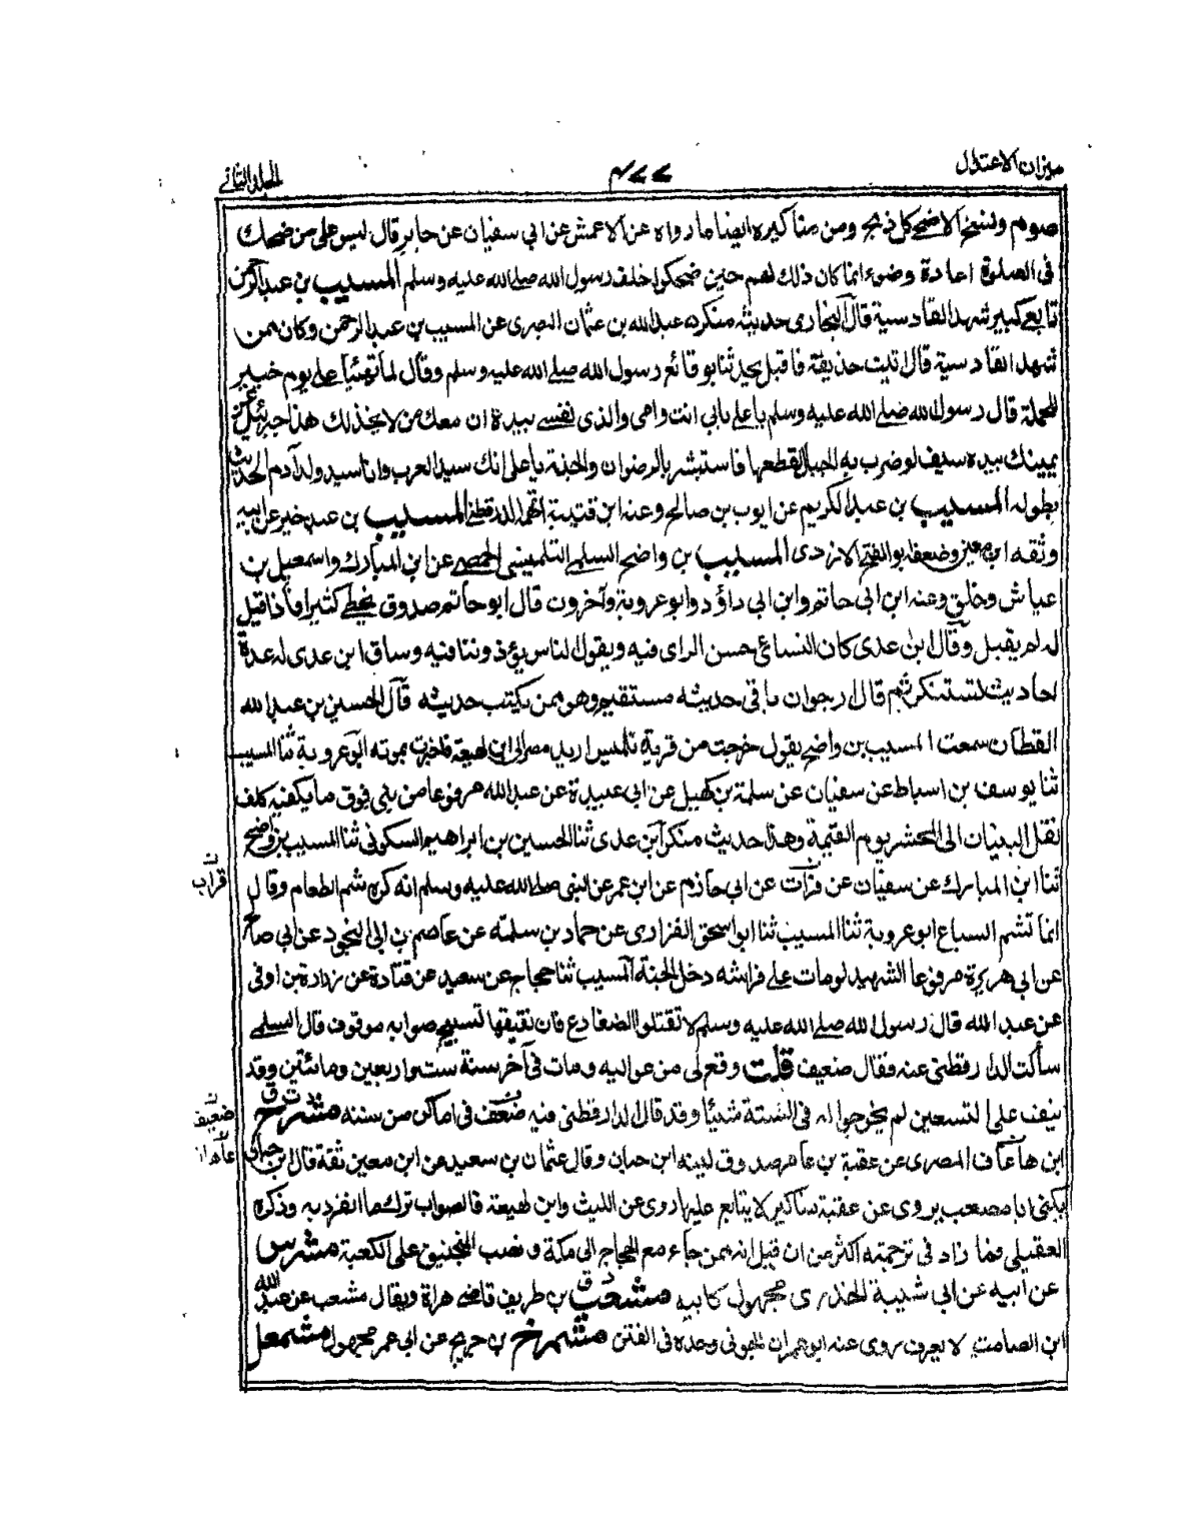 ميزان الاعتدال
٤٧٧
الجلد الثاني
صوم ونسخ الاضحى كل ذبح ومن مناكيره ايضا ما رواه عن الاعمش عن ابى سفيان عن جابر قال ليس على من ضحك
فى الصلوة اعادة وضوء انما كان ذلك لهم حين ضحكوا خلف رسول الله صلى الله عليه وسلم المسيب بن عبد الرحمن
تابعى كبير شهد القادسية قال البخارى حديثه منكر عبد الله بن عثمان البصرى عن المسيب بن عبد الرحمن وكان ممن
شهد القادسية قال اتيت حذيفة فاقبل يحدثنا بوقائع رسول الله صلى الله عليه وسلم وقال لما تهيأ على يوم خيبر
للحملة قال رسول الله صلى الله عليه وسلم يا على بابى انت وامى والذى نفسى بيده ان معك من لا يخذلك هذا جبرئيل عن
يمينك بيده سيف لو ضرب به الجبال لقطعها فاستبشر بالرضوان والجنة يا على انك سيد العرب وانا سيد ولد آدم الحديث
بطوله المسيب بن عبد الكريم عن ايوب بن صالح وعنه ابن قتيبة اتهمه الدارقطنى المسيب بن عبد خير عن ابيه
وثقه ابن معين وضعفه ابو الفتح الازدى المسيب بن واضح السلمى التلمنسى الحمصى عن ابن المبارك واسمعيل بن
عياش وخلق وعنه ابن ابى حاتم وابن ابى داؤد وابو عروبة وآخرون قال ابو حاتم صدوق يخطى كثيرا فاذا قيل
له لم يقبل وقال ابن عدى كان النسائى حسن الراى فيه ويقول الناس يؤذوننا فيه وساق ابن عدى له عدة
احاديث تستنكر ثم قال ارجو ان باقى حديثه مستقيم وهو ممن يكتب حديثه قال الحسين بن عبد الله
القطان سمعت المسيب بن واضح يقول خرجت من قرية تلمنس اريد مصر الى ابن لهيعة فاخبرت بموته ابو عروبة ثنا المسيب
ثنا يوسف بن اسباط عن سفيان عن سلمة بن كهيل عن ابى عبيدة عن عبد الله مرفوعا من بنى فوق ما يكفيه كلف
نقل البنيان الى المحشر يوم القيمة وهذا حديث منكر ابن عدى ثنا الحسين بن ابراهيم السكونى ثنا المسيب بن واضح
ثنا ابن المبارك عن سفيان عن فرات عن ابى حازم عن ابن عمر عن النبى صلى الله عليه وسلم انه كره شم الطعام وقال
انما تشم السباع ابو عروبة ثنا المسيب ثنا ابو اسحق الفزارى عن حماد بن سلمة عن عاصم بن ابى النجود عن ابى صالح
عن ابى هريرة مرفوعا الشهيد لو مات على فراشه دخل الجنة المسيب ثنا حجاج عن سعيد عن قتادة عن زرارة بن اوفى
عن عبد الله قال رسول الله صلى الله عليه وسلم لا تقتلوا الضفادع فان نقيقها تسبيح صوابه موقوف قال السلمى
سألت الدارقطنى عنه فقال ضعيف قلت وقع لى من عواليه ومات فى آخر سنة ست واربعين ومائتين وقد
نيف على التسعين لم يخرجوا له فى الستة شيئا وقد قال الدارقطنى فيه ضعف فى اماكن من سننه مشرح
ابن هاعان المصرى عن عقبة بن عامر صدوق لينه ابن حبان وقال عثمان بن سعيد عن ابن معين ثقة قال ابن حبان
يكنى ابا مصعب يروى عن عقبة مناكير لا يتابع عليها روى عن الليث وابن لهيعة فالصواب ترك ما انفرد به وذكره
العقيلى فما زاد فى ترجمته اكثر من ان قيل انه ممن جاء مع الحجاج الى مكة ونصب المنجنيق على الكعبة مشرس
عن ابيه عن ابى شيبة الخدرى مجهول كابيه مشعث بن طريف قاضى هراة ويقال مشعب عن عبد الله
ابن الصامت لا يعرف روى عنه ابو عمران الجونى وحده فى الفتن مشمرخ بن جريج عن ابى عمر مجهول مشمعل
قراب
ضعيف